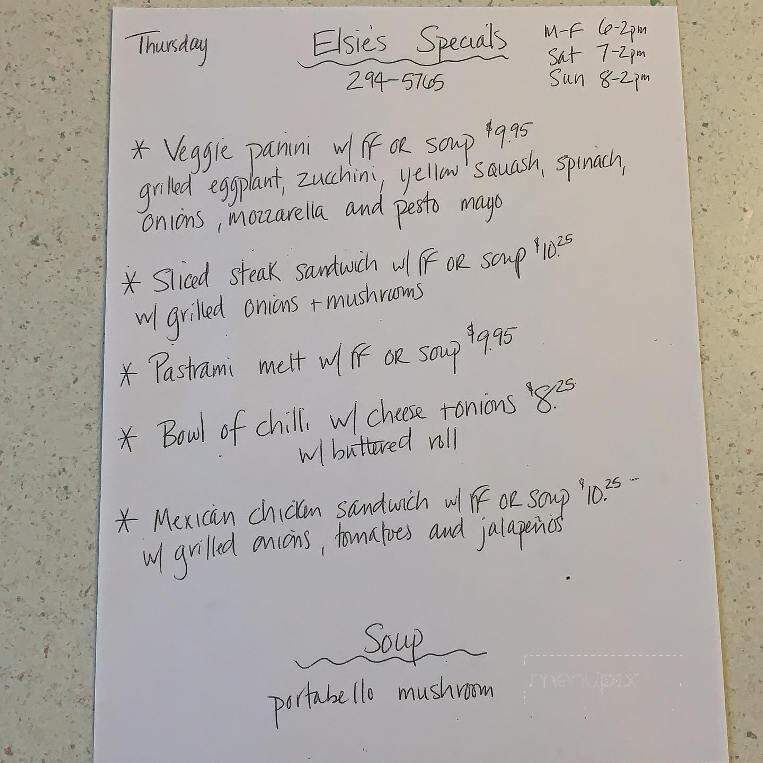 Thursday
Elsie's Specials
294-5765
M-F 6-2pm
Sat 7-2pm
Sun 8-2pm
* Veggie panini w/ ff or soup $9.95
grilled eggplant, zucchini, yellow squash, spinach,
onions, mozzarella and pesto mayo
* Sliced steak sandwich w/ ff or soup $10.25
w/ grilled onions + mushrooms
* Pastrami melt w/ ff or soup $9.95
* Bowl of chilli w/ cheese + onions $8.25
w/ buttered roll
* Mexican chicken sandwich w/ ff or soup $10.25
w/ grilled onions, tomatoes and jalapeños
Soup
portabello mushroom
menupix